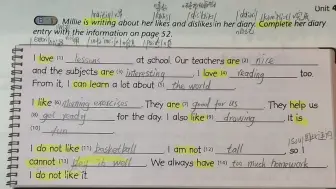 Unit 4
Millie is writing about her likes and dislikes in her diary. Complete her diary
entry with the information on page 52.
I love (1) lessons at school. Our teachers are (2) nice
and the subjects are (3) interesting. I love (4) reading too.
From it, I can learn a lot about (5) the world.
I like (6) morning exercises. They are (7) good for us. They help us
(8) get ready for the day. I also like (9) drawing. It is
(10) fun
I do not like (11) basketball I am not (12) tall, so I
cannot (13) play it well. We always have (14) too much homework
I do not like it.